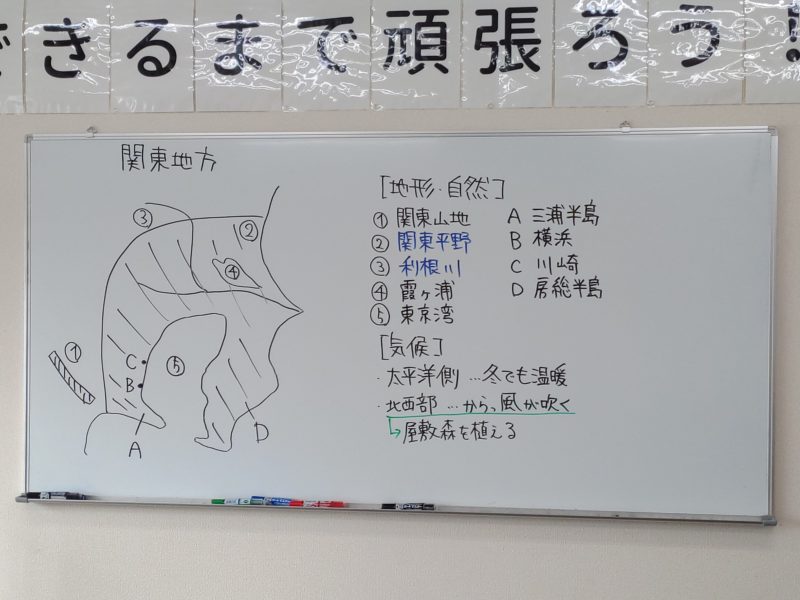 できるまで頑張ろう!
関東地方
[地形・自然]
① 関東山地 A 三浦半島
② 関東平野 B 横浜
③ 利根川 C 川崎
④ 霞ヶ浦 D 房総半島
⑤ 東京湾
[気候]
・太平洋側 …冬でも温暖
・北西部 …からっ風が吹く
↳屋敷森を植える
③
②
④
①
C
⑤
B
A
D